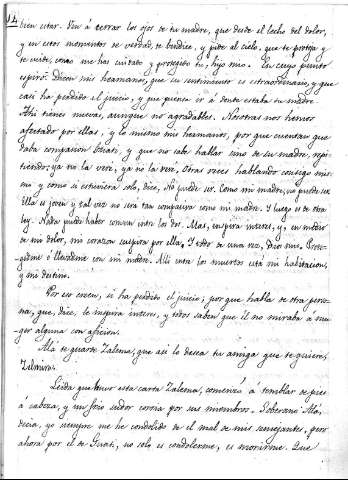 14
bien estar. Ven á cerrar los ojos de tu madre, que desde el lecho del dolor,
y en estos momentos de verdad, te bendice, y pide al cielo, que te proteja y
te asista, como me has cuidado y protegido tu, hijo mio. En cuyo punto
espiró. Dicen mis hermanos, que su sentimiento es estraordinario, y que
casi ha perdido el juicio, y que piensa ir á donde estaba su madre.
Ahi tienes nuevas, aunque no agradables. Nosotras nos hemos
afectado por ellas, y lo mismo mis hermanos, por que cuentan que
daba compasion Guati, y que no sabe hablar sino de su madre, repi-
tiendo; ya no la veré, ya no la veré. Otras veces hablando consigo mis-
ma y como si estuviera solo, dice, No puede ser. Como mi madre, no puede ser.
Ella es joven y tal vez no será tan compasiva como mi madre. Y luego es de otra
ley. Nada puede haber comun entre los dos. Mas, inspira interes, y, en medio
de mi dolor, mi corazon suspira por ella, Y todo de una vez, Dios mio. Prote-
gedme ó llevadme con mi madre. Alli entre los muertos está mi habitacion,
y mi destino.
Por eso creen, si ha perdido el juicio; por que habla de otra perso-
na, que, dice, le inspira interes, y todos saben que él no miraba á mu-
ger alguna con aficion.
Ala te guarde Zalema, que asi lo desea tu amiga que te quiere,
Zelmira.
Leida que hubo esta carta Zalema, comenzó á temblar de pies
á cabeza, y un frio sudor corria por sus miembros. Soberano Alá,
decia, yo siempre me he condolido de el mal de mis semejantes, pero
ahora por el de Guati, no solo es condolerme, es morirme. Que